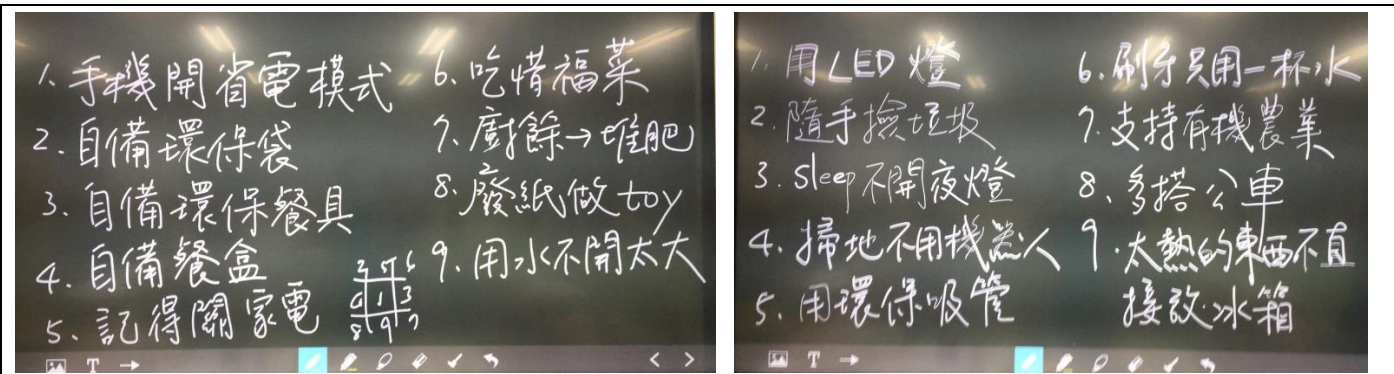 1. 手機開省電模式
2. 自備環保袋
3. 自備環保餐具
4. 自備餐盒
5. 記得關家電
6. 吃惜福菜
7. 廚餘→堆肥
8. 廢紙做toy
9. 用水不開太大
1. 用LED燈
2. 隨手撿垃圾
3. sleep不開夜燈
4. 掃地不用機器人
5. 用環保吸管
6. 刷牙只用一杯水
7. 支持有機農業
8. 多搭公車
9. 太熱的東西不直
接放冰箱
T
T